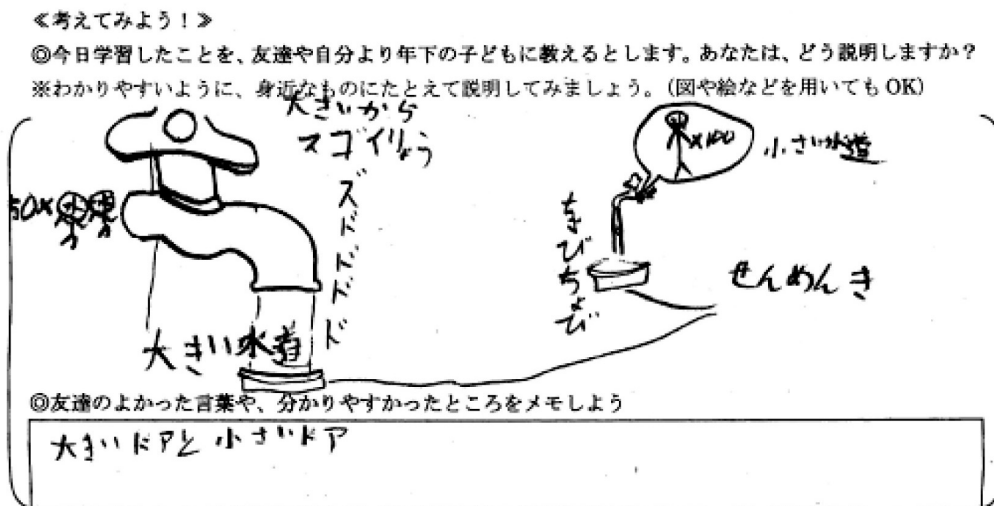 ≪考えてみよう！≫
◎今日学習したことを、友達や自分より年下の子どもに教えるとします。あなたは、どう説明しますか？
※わかりやすいように、身近なものにたとえて説明してみましょう。（図や絵などを用いても OK）
大きいから
スゴイりょう
ズドドドド
大きい水道
×100
小さい水道
せんめんき
◎友達のよかった言葉や、分かりやすかったところをメモしよう
大きいドアと小さいドア